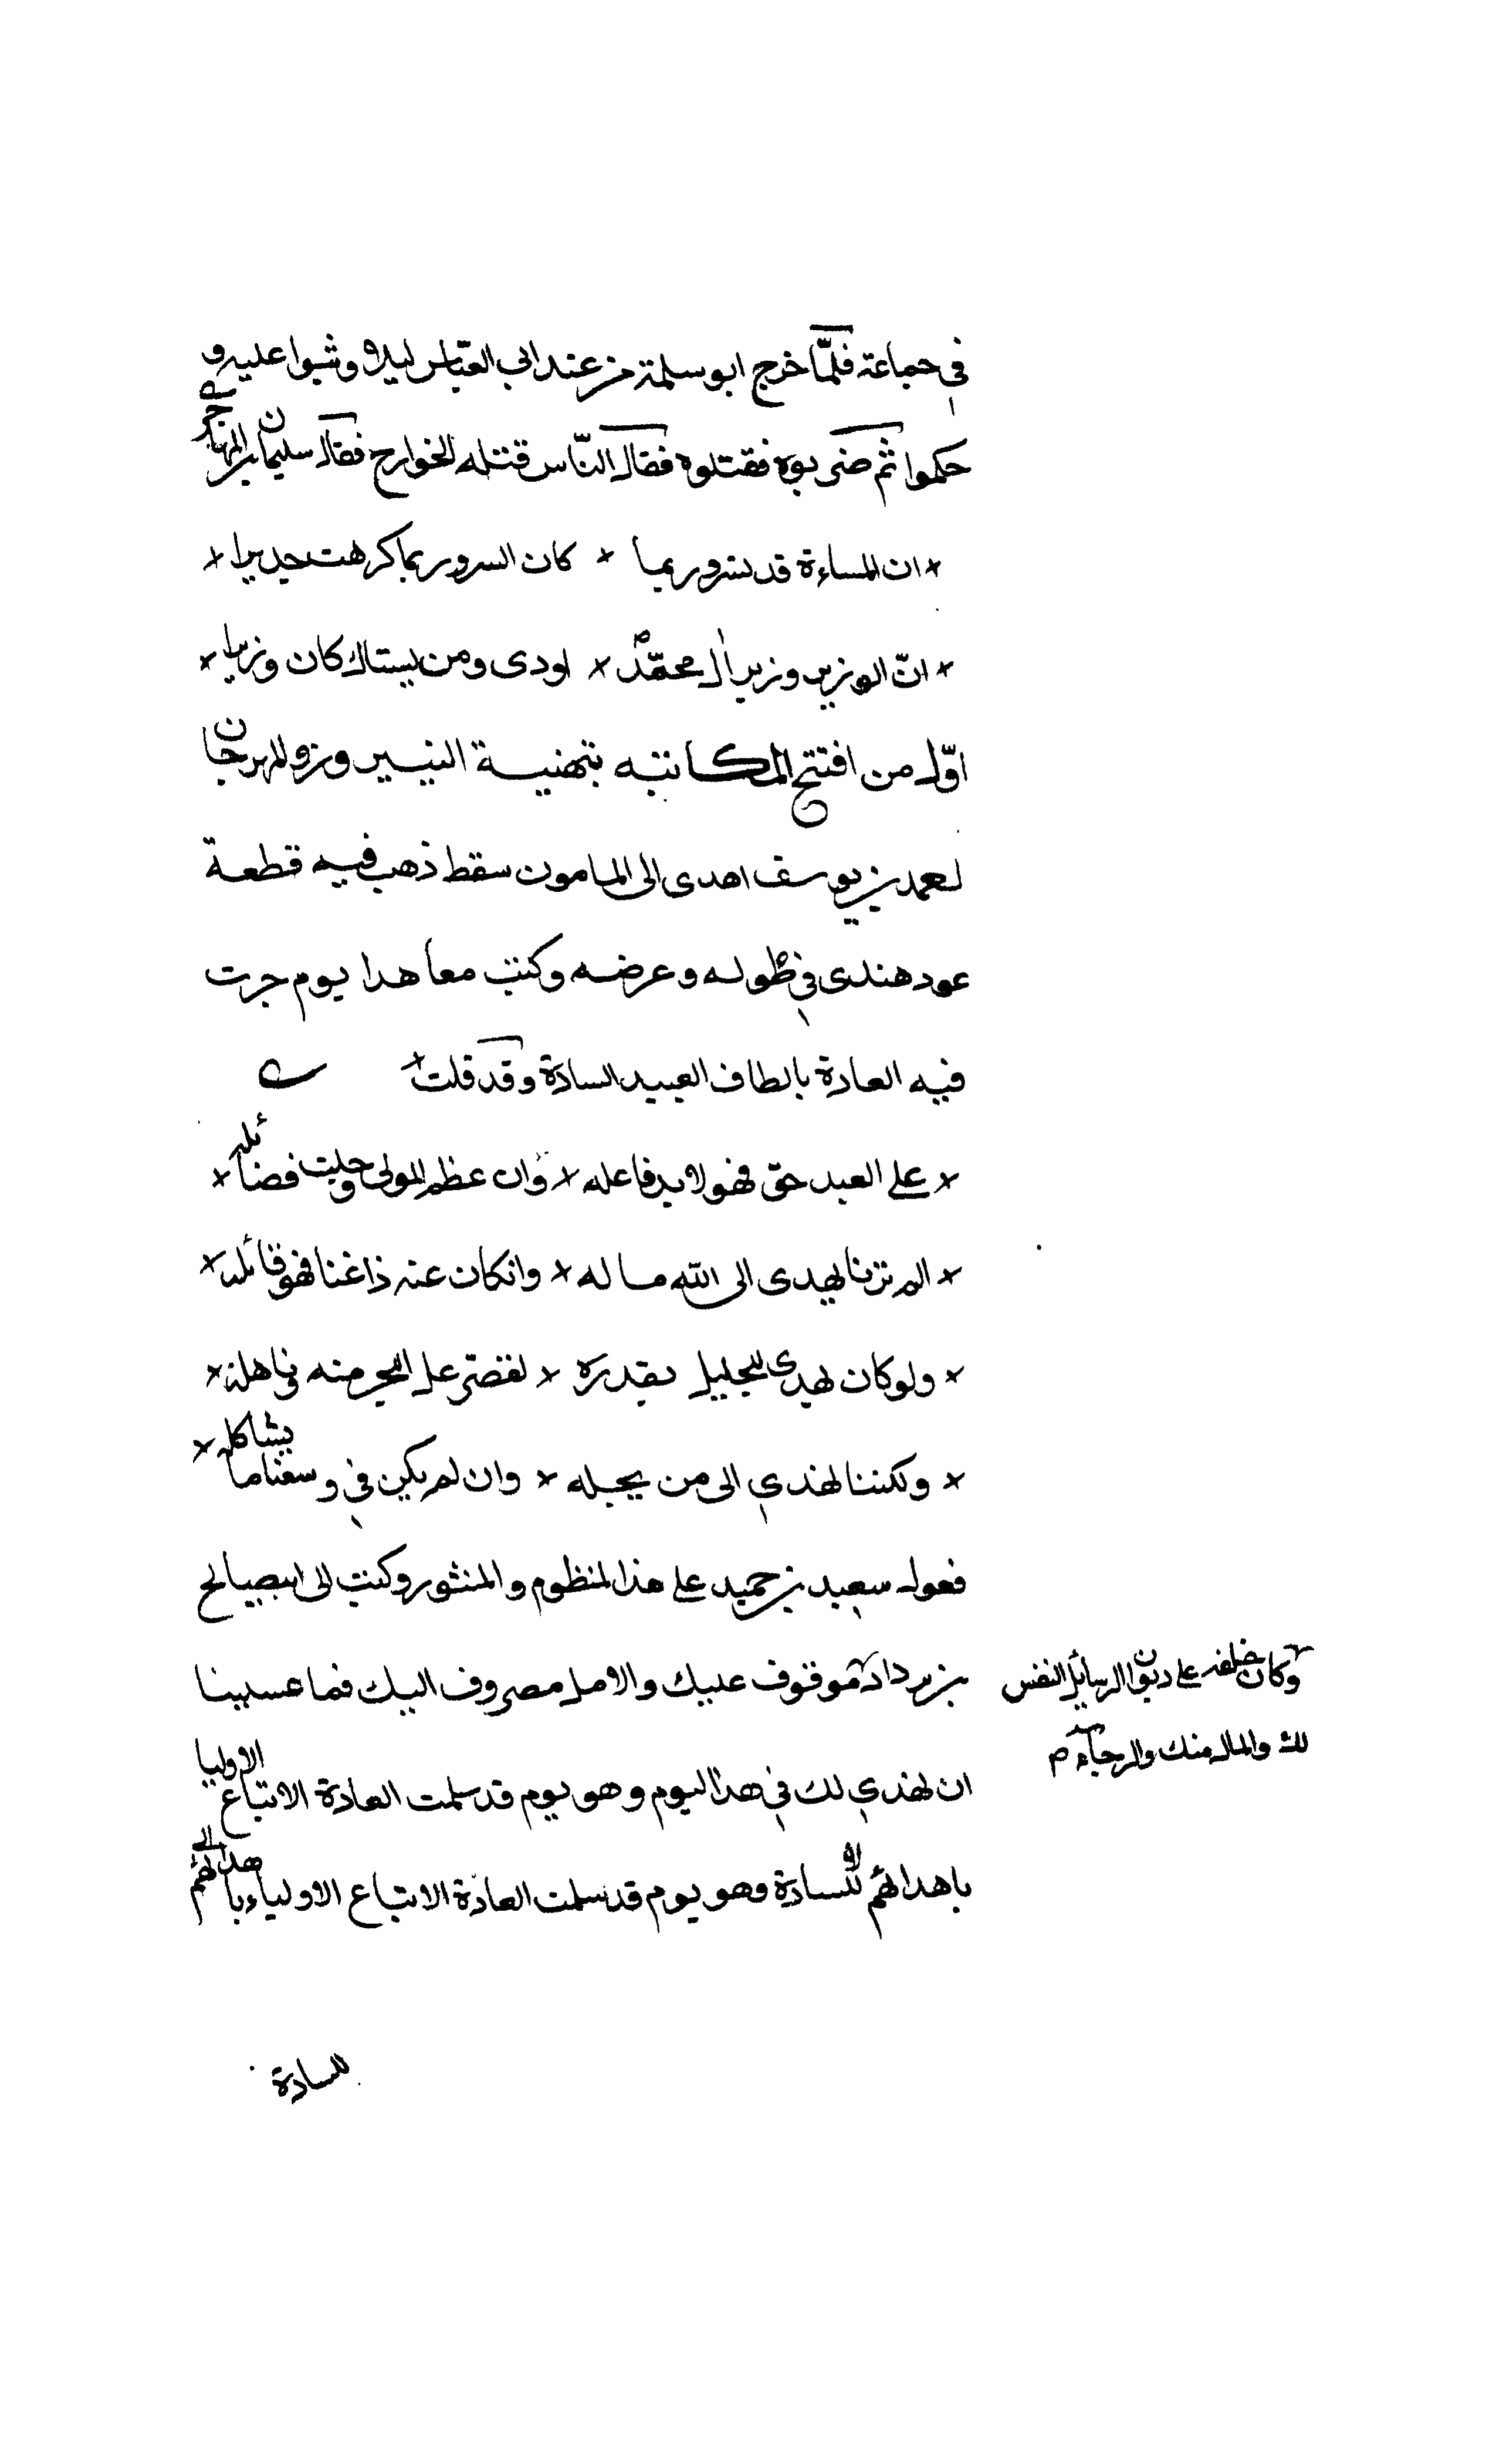 في جماعة فلمّا خرج ابو سلمة من عند ابي العبّاس ليلا وثبوا عليه و
حكموا ثم ضربوه فقتلوه فقال النّاس قتله الخوارج فقال سليمان بن المهاجر
× ان المساءة قد تسرو ربما × كان السرور بما كرهت جديرا ×
× انّ الوزير وزير ال محمّد × اودى ومن يشناك كان وزيرا ×
اوّل من افتتح المكاتبه بتهنية النيروز والمهرجان
احمد بن يوسف اهدى الى المامون سفط ذهب فيه قطعة
عود هندى في طوله وعرضه وكتب معا هدا يوم جرت
فيه العادة بالطاف العبيد السادة وقد قلت
× على العبد حق فهو لا بد فاعله × وان عظم المولى وجلت فضائله ×
× الم ترنا نهدى الى الله ماله × وانكان عنه ذا غنا فهو قابله ×
× ولو كان يهدى للجليل بقدره × لقصّر على البحر منه وناهله ×
× ولكننا نهدي الى من يجله × وان لم يكن في وسعنا ما يشاكله ×
فعول سعيد بن حميد على هذا المنظوم والمنثور وكتب الى ابى صالح
بن يزداد موقوف عليك والامل مصروف اليك فما عسينا
وكان خلفه على ديوان الرسائل النفس
لك والمال منك والرجاء
ان نهدي لك في هذا اليوم وهو يوم قد سلمت العادة الاتباع الاوليا
باهدائهم للسادة وهو يوم قد سلمت العادة الاتباع الاولياء باهدائهم
للسادة